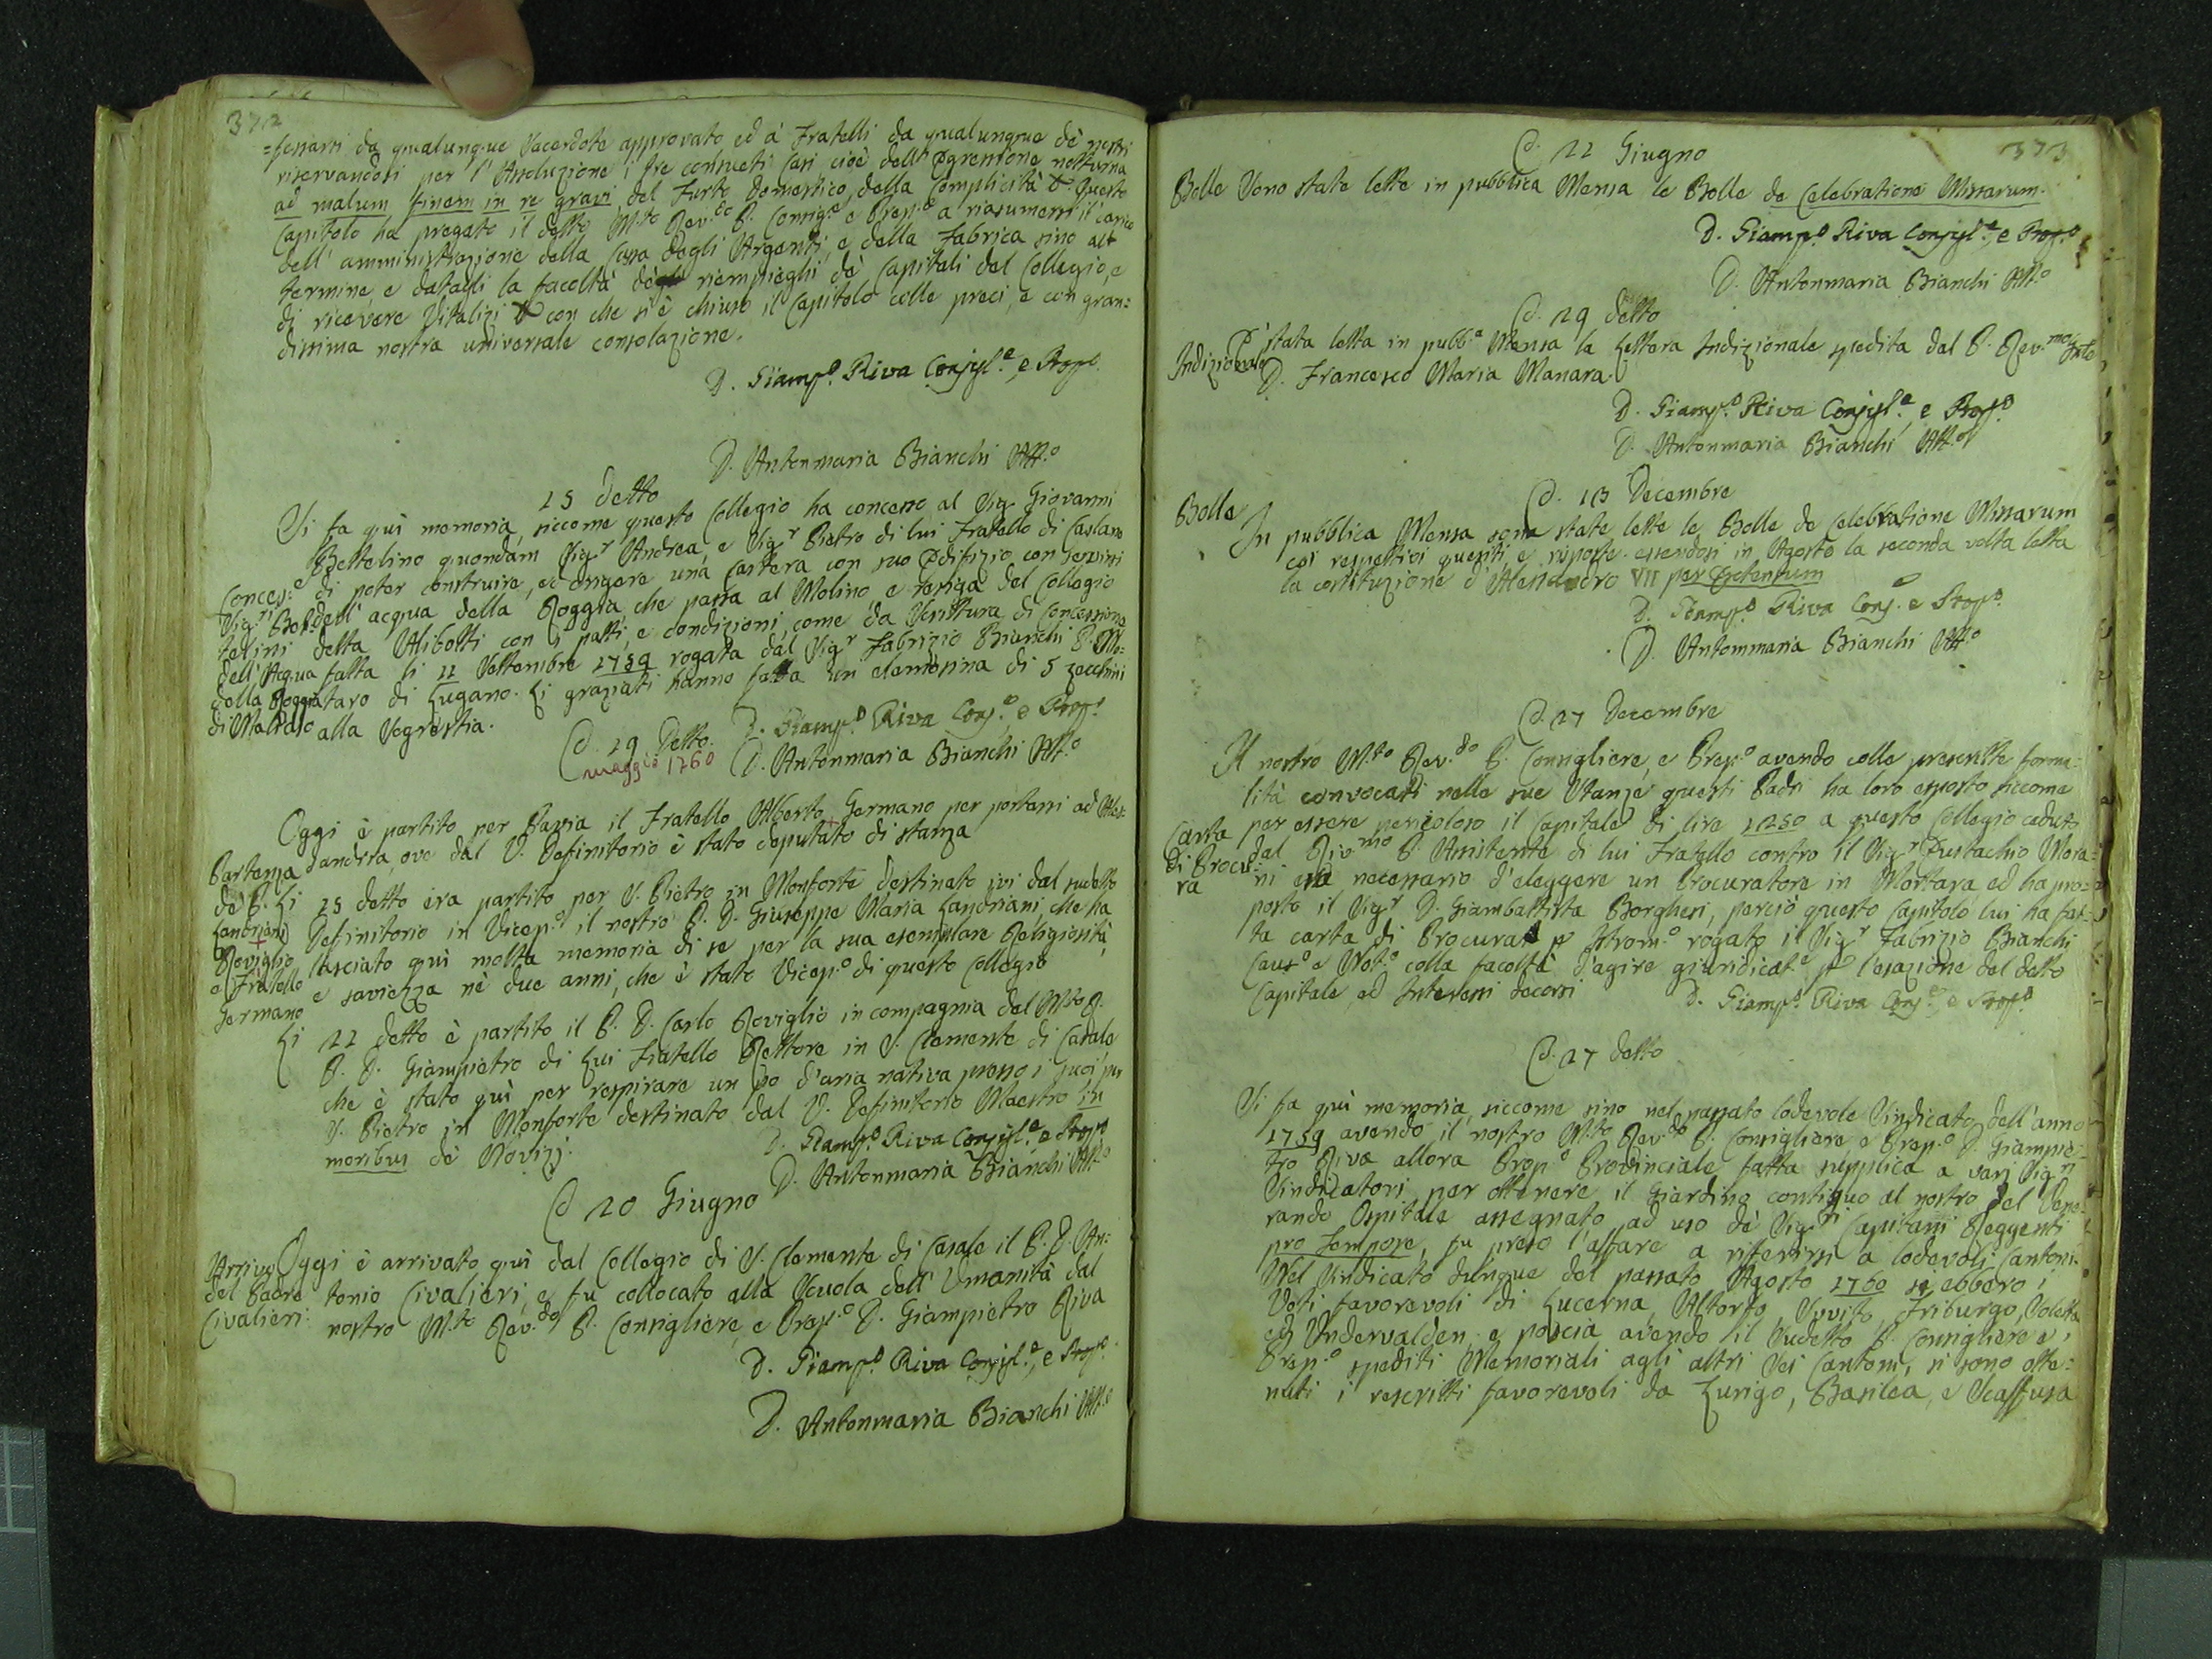 372
=fessarsi da qualunque Sacerdote approvato ed a' Fratelli da qualunque dè nostri
riservandosi per l'Assoluzione i tre consueti Casi cioè dell'Egressione notturna
ad malum finem in re gravi, del Furto Domestico, della Complicità &. Questo
Capitolo ha pregato il detto M.to Rev.do P. Consig.e e Prep.o a riasumersi il carico
dell'amministrazione della Cassa degli Argenti, e della Fabrica sino al
termine, e datagli la facoltà de riempieghi dè Capitali del Collegio, e
di ricevere Vitalizi & con che si è chiuso il Capitolo colle preci, e con gran=
dissima nostra universale consolazione.
D. Giamp.o Riva Consigl.e e Prop.o
D. Antonmaria Bianchi Att.o
25 detto
Si fa qui memoria, siccome questo Collegio ha concesso al Sig. Giovanni
Bettelino quondam Sig.r Andrea, e Sig.r Pietro di lui Fratello di Caslano
Conces.e di poter construire, ed erigere una Cartera con suo Edifizio con servirsi
Sig.ri Bet= dell'acqua della Roggia, che passa al Molino, e resiga del Collegio
telini detta Alibotti con i patti, e condizioni come da Scrittura di Concessione
dell'Acqua fatta li 22 Settembre 1759 rogata dal Sig.r Fabrizio Bianchi P. No=
della Roggia taro di Lugano. Li graziati hanno fatta un elemosina di 5 zecchini
di Maltaso alla Segrestia.
D. Giamp.o Riva Cons.e e Prop.o
D. 29 Detto.
maggio 1760
D. Antonmaria Bianchi Att.o
Oggi è partito per Pavia il Fratello Alberto Germano per portarsi ad Ales=
Partenza sandria, ove dal V. Definitorio è stato deputato di stanza
de P. Li 25 detto era partito per S. Pietro in Monforte destinato ivi dal sudetto
Landriani Definitorio in Vicep.o il nostro P. D. Giuseppe Maria Landriani, che ha
Roviglio lasciato qui molta memoria di se per la sua esemplare Religiosità,
e Fratello e saviezza nè due anni, che è stato Vicep.o di questo Collegio
Germano
Li 22 detto è partito il P. D. Carlo Roviglio in compagnia del M.to R.
P. D. Giampietro di Lui Fratello Rettore in S. Clemente di Casale
che è stato qui per respirare un po d'aria nativa presso i suoi, per
S. Pietro in Monforte destinato dal V. Definitorio Maestro in
moribus dè Novizj.
D. Giamp.o Riva Consigl.e e Prop.o
D. Antonmaria Bianchi Att.o
D 20 Giugno
Arrivo Oggi è arrivato qui dal Collegio di S. Clemente di Casale il P. D. An=
del Padre tonio Civalieri, e fu collocato alla Scuola dell'Umanità dal
Civalieri: nostro M.to Rev.do P. Consigliere, e Prep.o D. Giampietro Riva
D. Giamp.o Riva Consigl.e, e Prop.o
D. Antonmaria Bianchi Att.o
373
D. 22 Giugno
Bolle Sono state lette in pubblica Mensa le Bolle de Celebratione Missarum.
D. Giamp.o Riva Consigl.e, e Prop.o
D. Antonmaria Bianchi Att.o
D. 29 detto
È stata letta in pubb.a Mensa la Lettera Indizionale spedita dal P. Rev.mo Gnle
Indizionale D. Francesco Maria Manara.
D. Giamp.o Riva Consigl.e, e Prop.o
D. Antonmaria Bianchi Att.o
D. 13 Decembre
Bolle In pubblica Mensa sono state lette le Bolle de Celebratione Missarum
coi respettivi quesiti, e risposte. essendosi in Agosto la seconda volta letta
la constituzione d'Alessandro VII per Extensum
D. Giamp.o Riva Cons.e e Prop.o
D. Antonmaria Bianchi Att.o
D. 27 Decembre
Il nostro M.to Rev.do P. Consigliere, e Prep.o avendo colle prescritte forma=
lità convocati nelle sue Stanze questi Padri ha loro esposto siccome
Carta per essere pericoloso il Capitale di lire 11250 a questo Collegio ceduto
di Procu= dal Rev.mo P. Assistente di lui Fratello contro il Sig.r Eustachio Mora=
ra ni era necessario d'eleggere un Procuratore in Mortara, ed ha pro=
posto il Sig.r D. Giambattista Borghesi, perciò questo Capitolo lui ha fat=
ta carta di Procura p Istrom.o rogato il Sig.r Fabrizio Bianchi
Caus.o e Not.o colla facoltà d'agire giuridicat.e p l'esazione del detto
Capitale ed Interessi decorsi
D. Giamp.o Riva Cons.e e Prop.o
D. 27 detto
Si fa qui memoria siccome sino nel passato lodevole Sindicato dell'anno
1759 avendo il nostro M.to Rev.do P. Consigliere e Prep.o D. Giampie=
tro Riva allora Prep.o Provinciale fatta supplica a varj Sig.ri
Sindicatori per ottenere il Giardino contiguo al nostro del Vene=
rando Ospitale assegnato ad uso dè Sig.ri Capitani Reggenti
pro tempore, fu preso l'affare a riferirsi a lodevoli Cantoni.
Nel Sindicato dunque del passato Agosto 1760 si ebbero i
Voti favorevoli di Lucerna, Altorfo, Svvitto, Friburgo, Soletta
ed Undervalden; e poscia avendo il sudetto P. Consigliere e
Prep.o spediti Memoriali agli altri Sei Cantoni, si sono otte=
nuti i rescritti favorevoli da Zurigo, Basilea, e Scaffusa